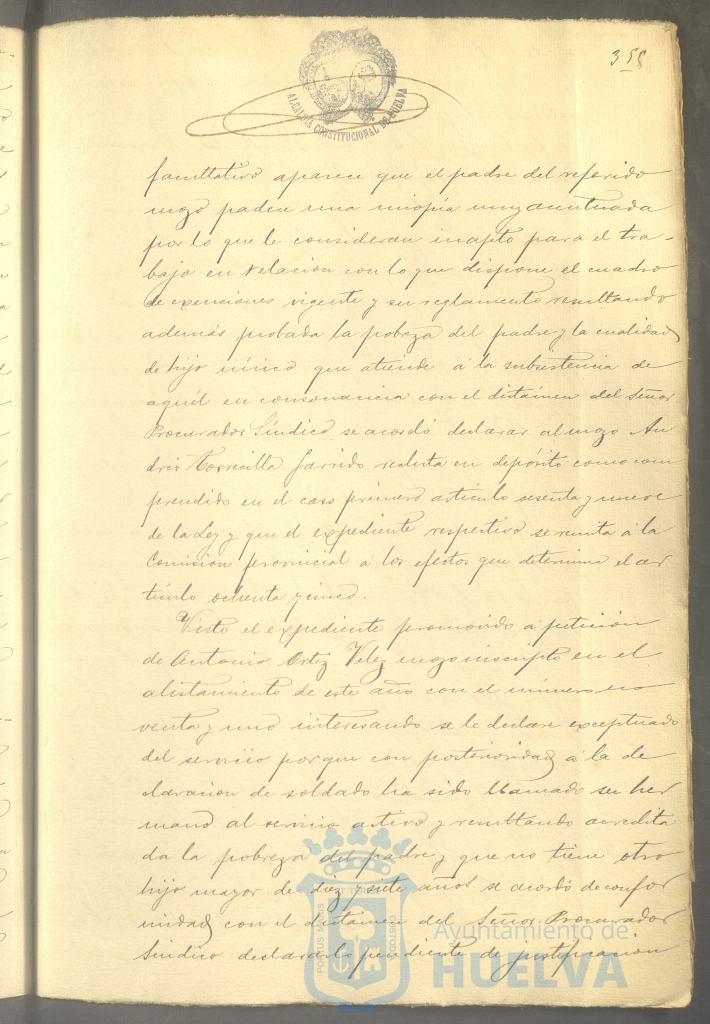 355
ALCALDIA CONSTITUCIONAL DE HUELVA
facultativo aparece que el padre del referido
mozo padece una miopía muy acentuada
por lo que le consideran inapto para el tra-
bajo en relacion con lo que dispone el cuadro
de exenciones vigente y su reglamento resultando
además probada la pobreza del padre y la cualidad
de hijo único que atiende á la subsistencia de
aquél en consonancia con el dictámen del Señor
Procurador Síndico se acordó declarar al mozo An
drés Torrecilla Garrido recluta en depósito como com
prendido en el caso primero artículo sesenta y nueve
de la Ley y que el expediente respectivo se remita á la
Comision provincial á los efectos que determina el ar
tículo ochenta y cinco.
Visto el expediente promovido á peticion
de Antonio Ortiz Velez mozo inscripto en el
alistamiento de este año con el número no
venta y uno interesando se le declare exceptuado
del servicio porque con posterioridad á la de
claracion de soldado ha sido llamado su her
mano al servicio activo y resultando acredita
da la pobreza del padre y que no tiene otro
hijo mayor de diez y siete años se acordó de confor
midad con el dictámen del Señor Procurador
Síndico declararlo pendiente de justificacion
Ayuntamiento de
HUELVA